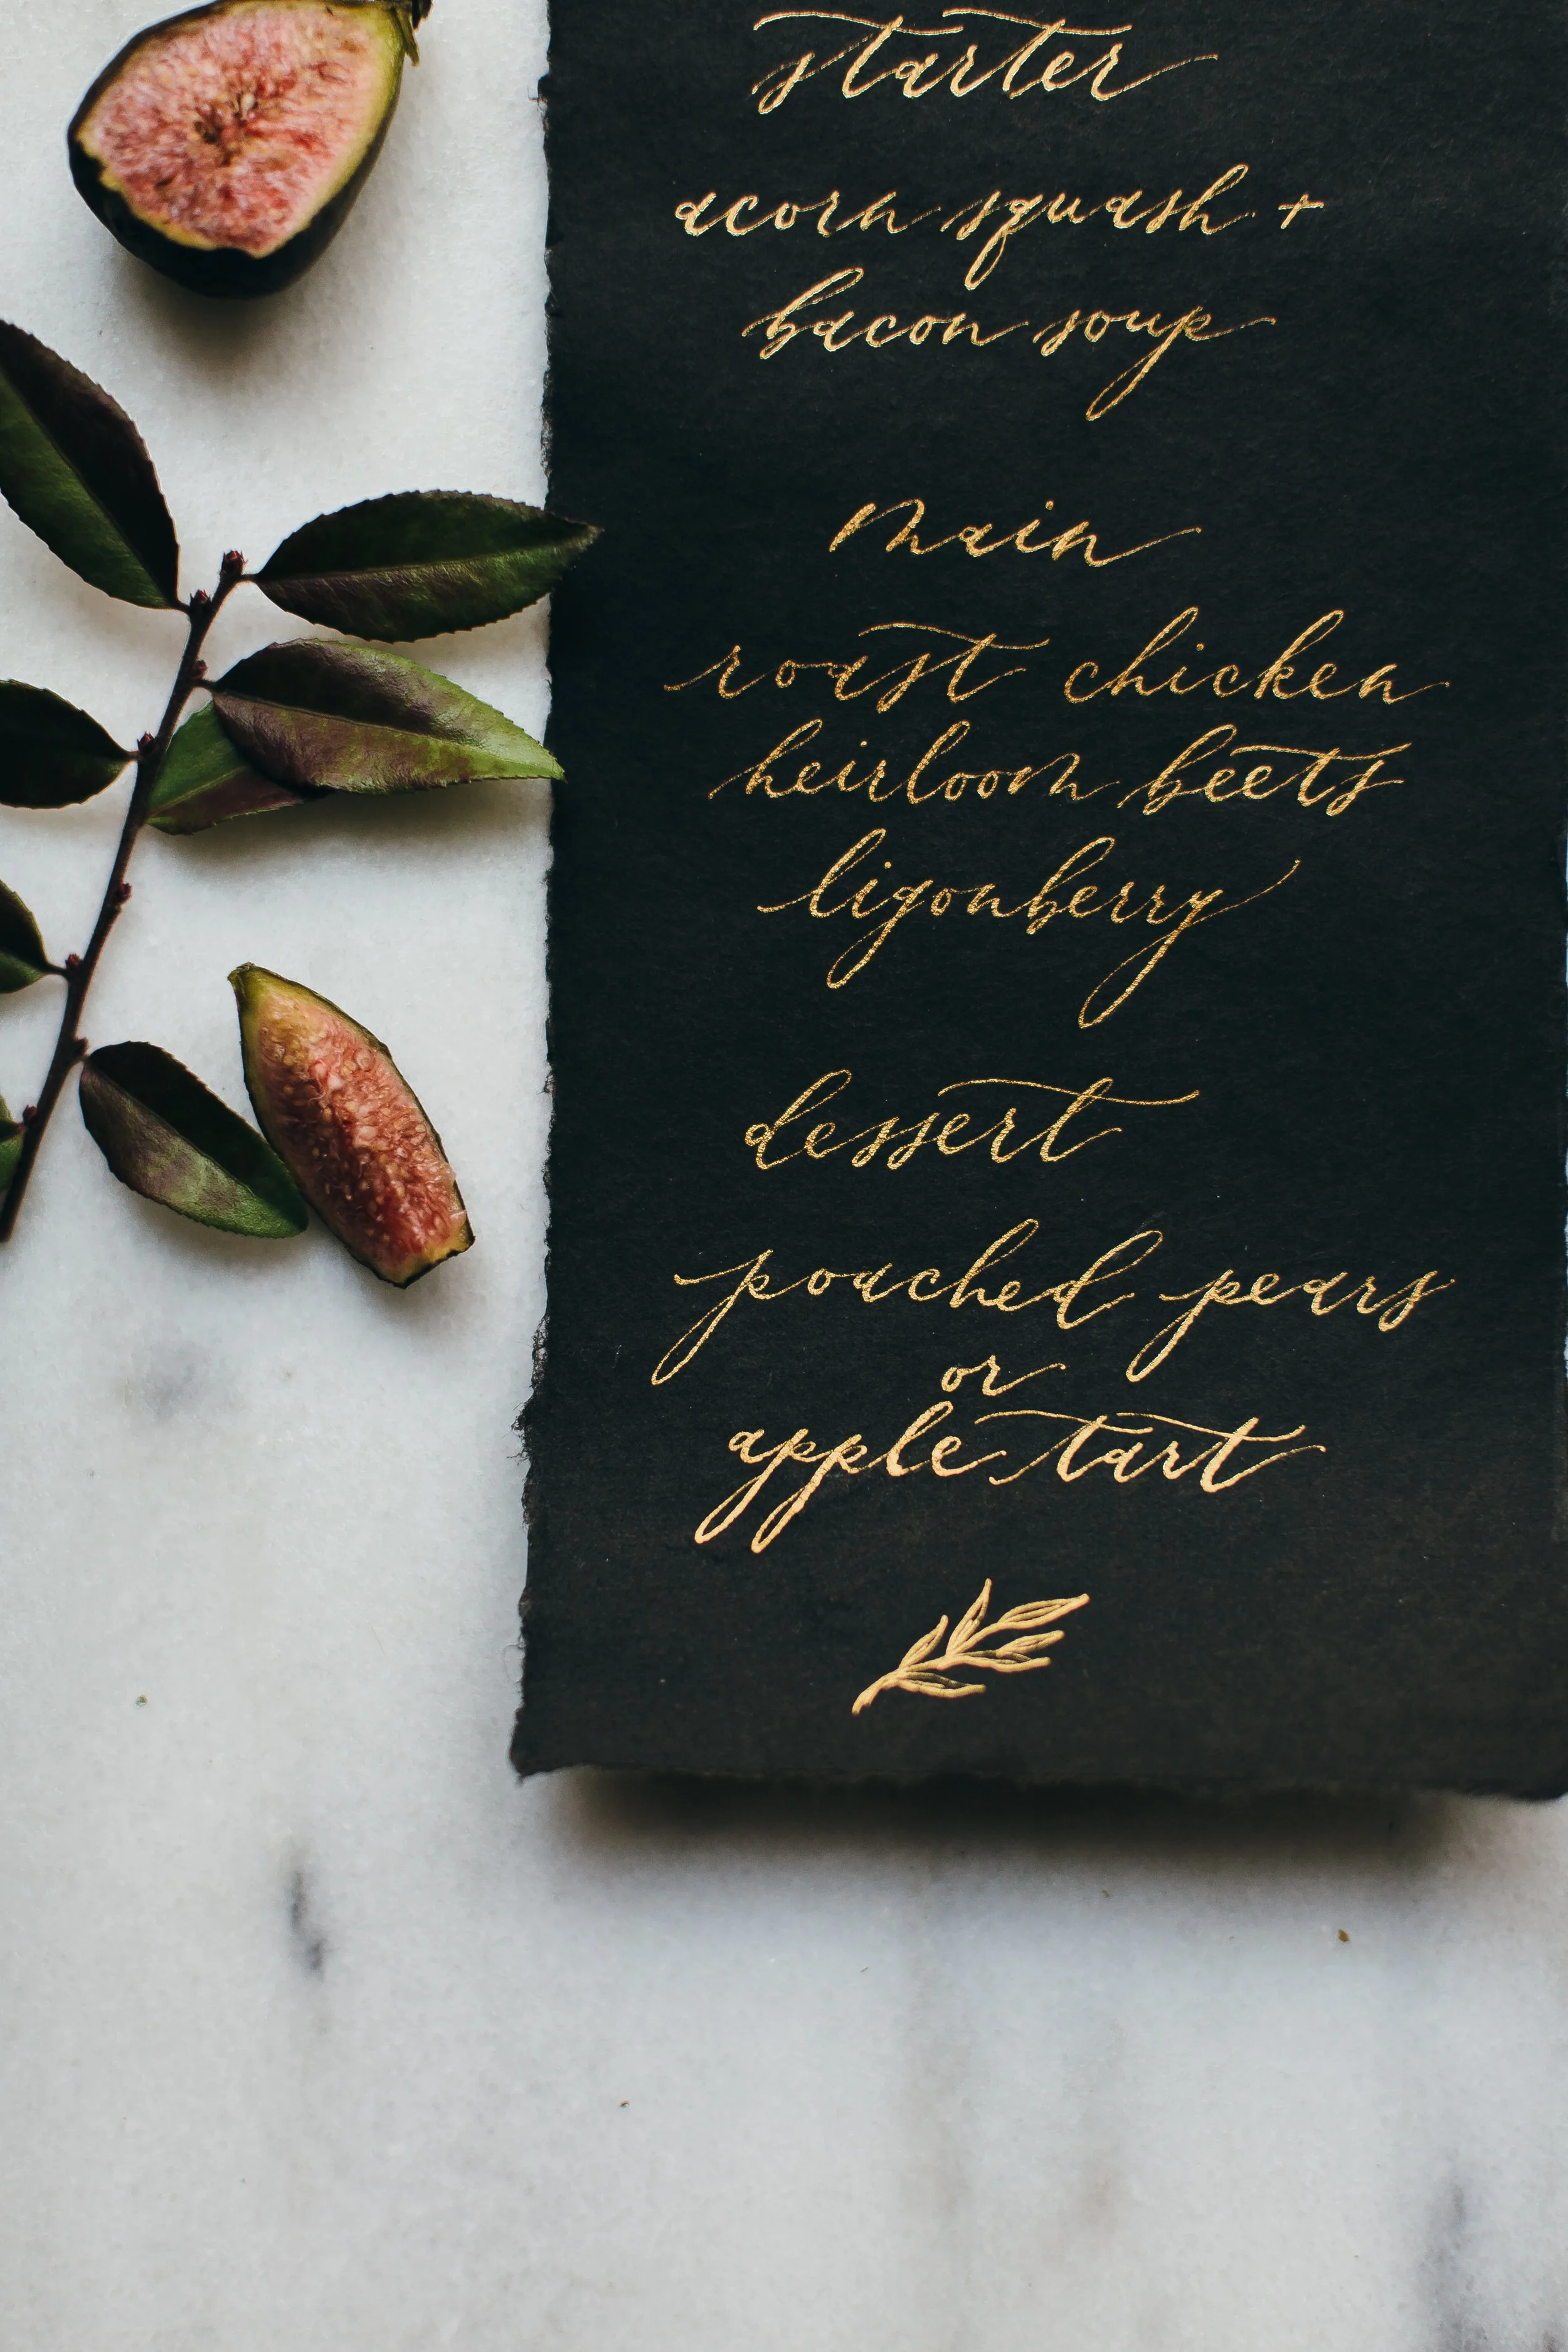 starter
acorn squash +
bacon soup
main
roast chicken
heirloom beets
ligonberry
dessert
poached pears
or
apple tart